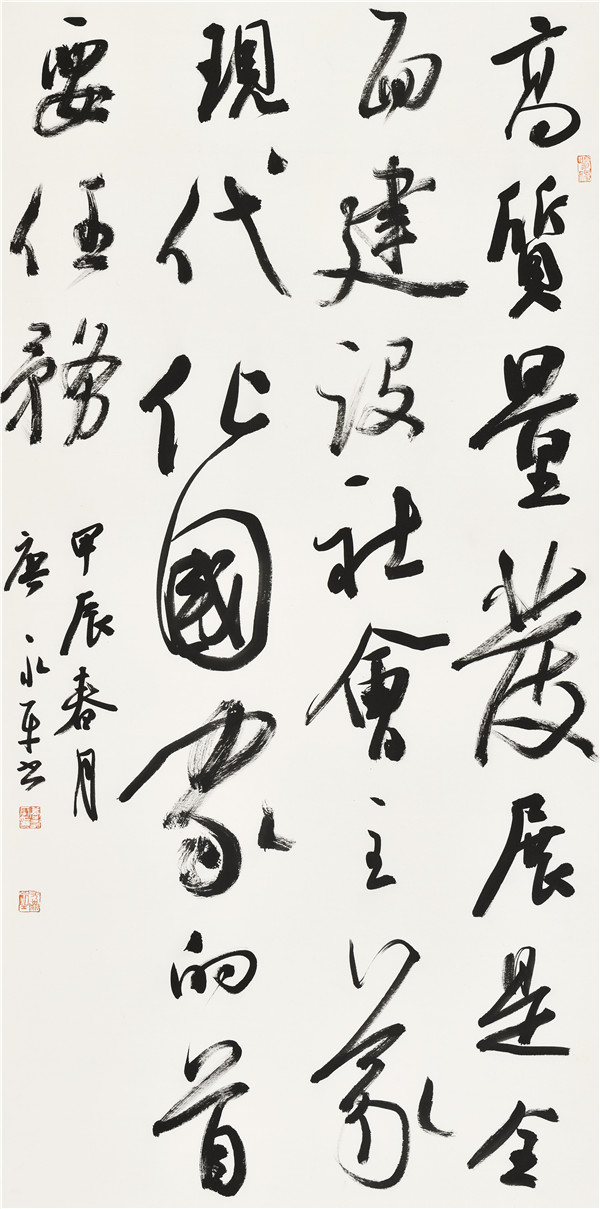 高質量發展是全
面建設社會主義
現代化國家的首
要任務
甲辰春月
唐永平书